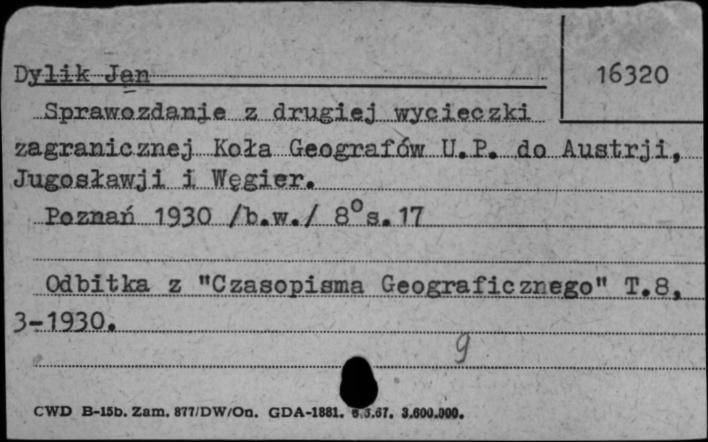 Dylik Jan
16320
Sprawozdanie z drugiej wycieczki
zagranicznej Koła Geografów U.P. do Austrji,
Jugosławji i Węgier.
Poznań 1930 /b.w./ 8° s.17
Odbitka z "Czasopisma Geograficznego" T.8,
3-1930.
g
CWD B-15b. Zam. 877/DW/On. GDA-1881. 3.67. 3.600.000.